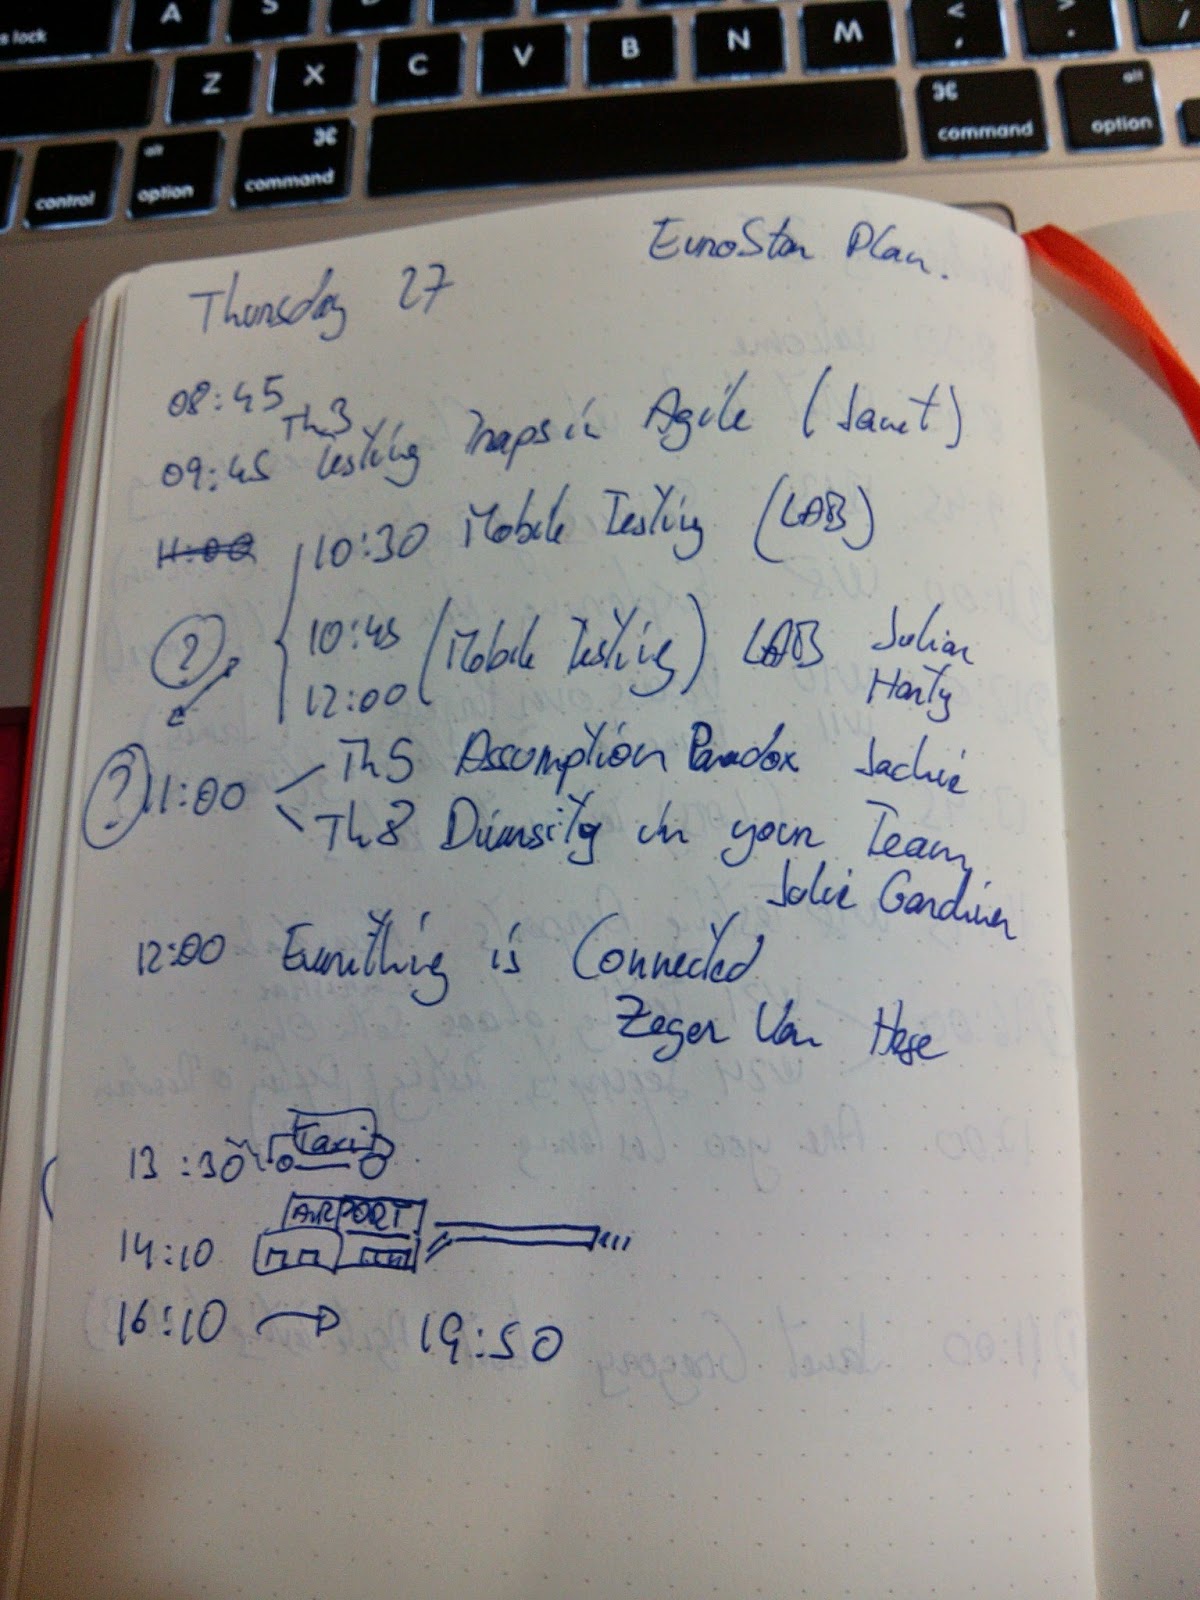 s lock A S D
Z X C V B N M < , > . /
control alt option ⌘ command ⌘ command alt option
EuroStar Plan.
Thursday 27
08:45
Th3
09:45 Testing Traps in Agile (Janet)
11:00 10:30 Mobile Testing (LAB)
? 10:45 (Mobile Testing) LAB Julian
12:00 Harty
? 11:00 Th5 Assumption Paradox Jackie
Th8 Diversity in your Team
Julie Gardiner
12:00 Everything is Connected
Zeger Van Hese
13:30 Taxi
14:10 AIRPORT
16:10 → 19:50